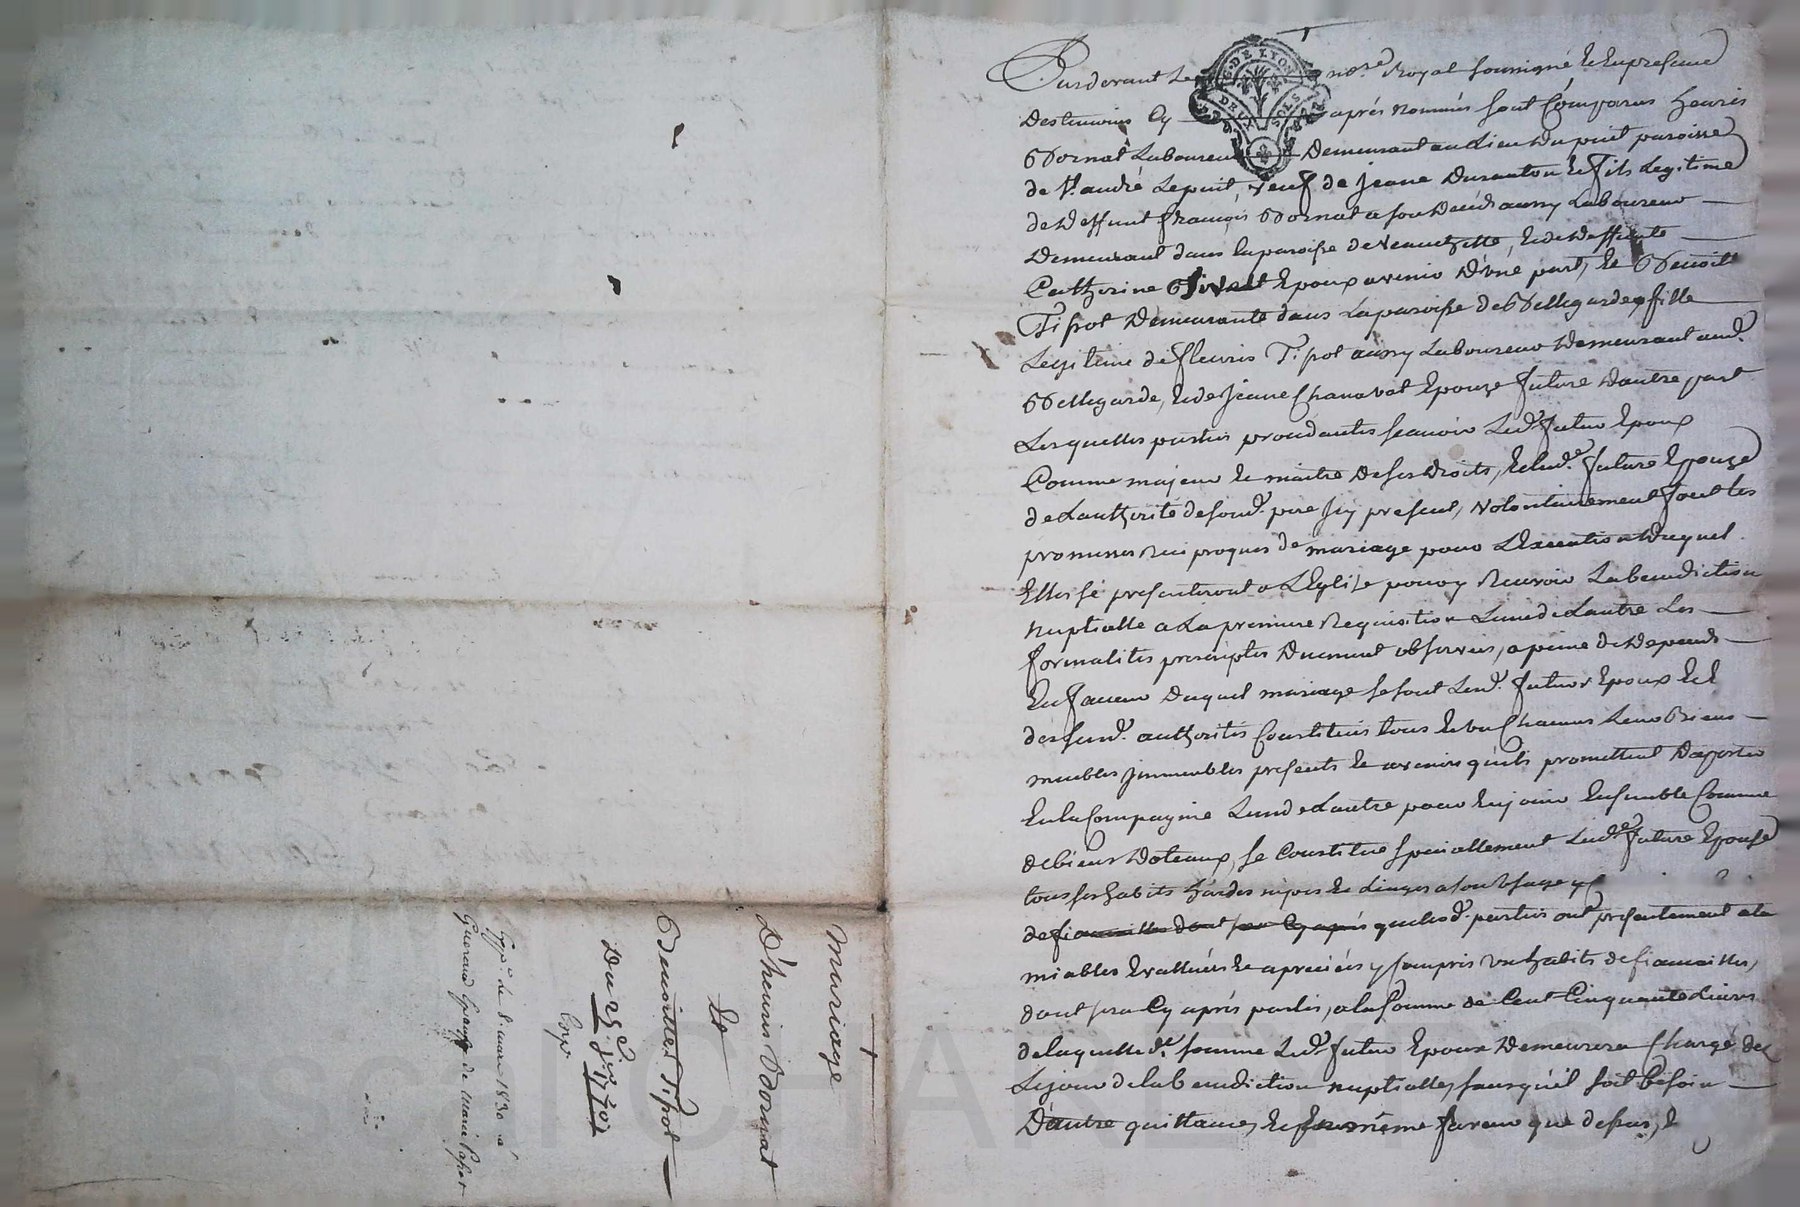 Pardevant Le no.re Royal soussigné Et En presence
Des temoins Cy après Nommés sont Comparus henris
Bornat Laboureur Demeurant au Lieu Du puit paroisse
de St. andré Le puit, veuf de jeane Duranton Et fils Legitime
de Deffunt françois Bornat a son Décéds aussy Laboureur
Demeurant dans la paroisse de Neauzette, Et de Deffunte
Catherine Epoux avenir D'une part, Et Benoitte
Tissot Demeurante dans La paroisse de Bellegarde, fille
Legitime de fleuris Tissot aussy Laboureur Demeurant aud.
Bellegarde, Et de jeane Chanavat Epouze future Dautre part
Lesquelles parties procedantes scavoir Led. futur Epoux
Comme majeur Et maitre De ses Droits, Et lad.e future Epouze
de Lauthorité de sond. pere Icy present, volontairement font les
promesses Reciproques de mariage pour L'Execution Duquel
Elles se presenteront a L'Eglize pour y Recevoir La benediction
Nuptialle a La premiere Requisition Lun de Lautre Les
formalités prescriptes Duement observées, a peine de Depends
En faveur Duquel mariage se sont Lesd. futurs Epoux Et E
des susd. authorités Constitués tous Et un Chacuns Leurs Biens
meubles jmmeubles presents Et avenirs qu'ils promettent D'aporter
En la Compagnie Lun de Lautre pour En jouir Ensemble Comme
de biens Doteaux, se Constitue speciallement Lad.e future Epouse
tous ses habits hardes nipes Et Linges a son Usage
de fiancailles dont sera Cy après que lesd. parties ont presentement a la
miables Evallués Et apreciés y Compris un habits de fiancailles,
dont sera Cy après parlés, a la somme de Cent Cinquante Livres
de laquelle d.e somme Led. futur Epoux Demeurera Chargé des
Le jour de la benediction nuptialle, sans qu'il soit besoin
D'autre quittance, Et En même faveur que dessus, E
Mariage
D'henris Bornat
Et
Benoitte Tisot
Du 25e jer 1701
Exp.
Exp. le 8 mars 1830 a
Guerand Epaux de Marie